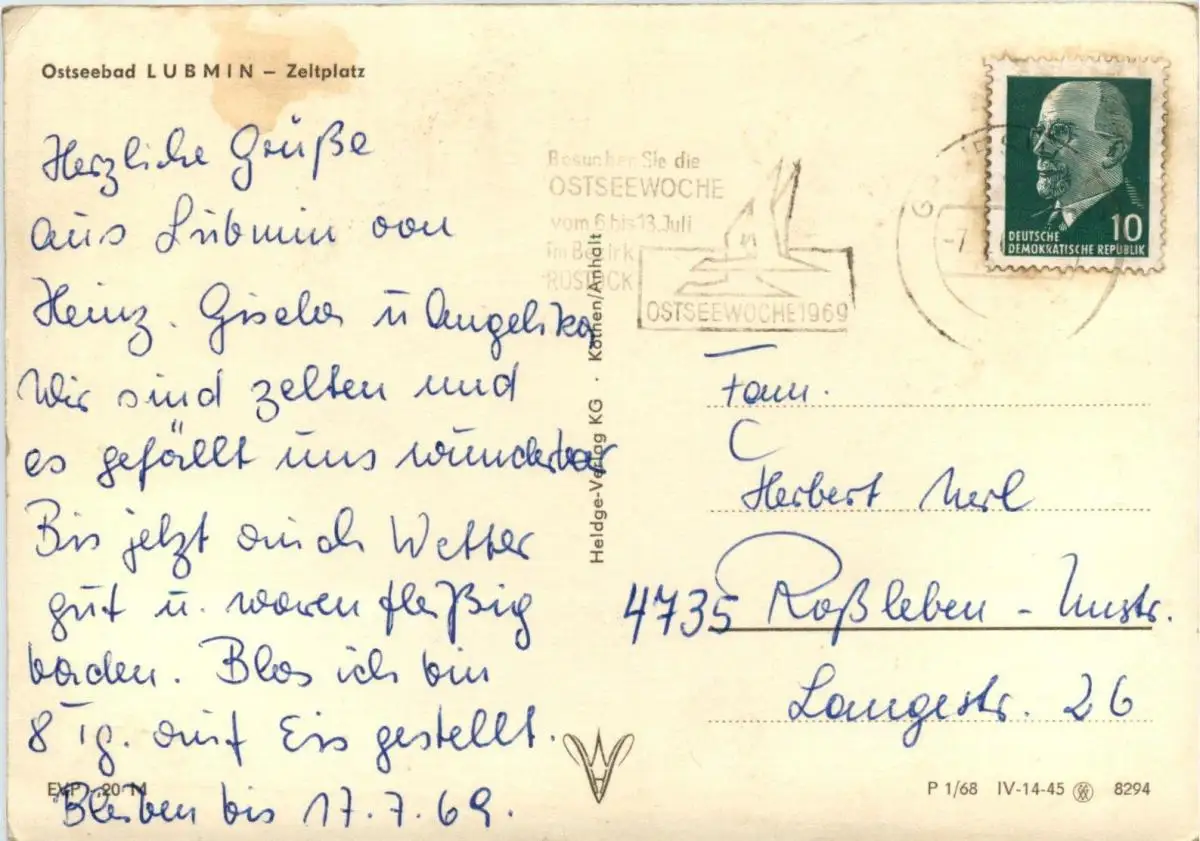 Ostseebad LUBMIN – Zeltplatz
Herzliche Grüße
aus Lubmin von
Heinz. Gisela u Angelika,
Wir sind zelten und
es gefällt uns wunderbar
Bis jetzt auch Wetter
gut u. waren fleißig
baden. Blos ich bin
8 Tg. auf Eis gestellt.
Bleiben bis 17.7.69.
EVP -,20 M
Besuchen Sie die
OSTSEEWOCHE
vom 6 bis 13. Juli
im Bezirk
ROSTOCK
OSTSEEWOCHE 1969
10
DEUTSCHE
DEMOKRATISCHE REPUBLIK
Heldge-Verlag KG · Köthen/Anhalt
Fam.
Herbert
4735 Roßleben - Unstr.
Langestr. 26
P 1/68 IV-14-45 8294